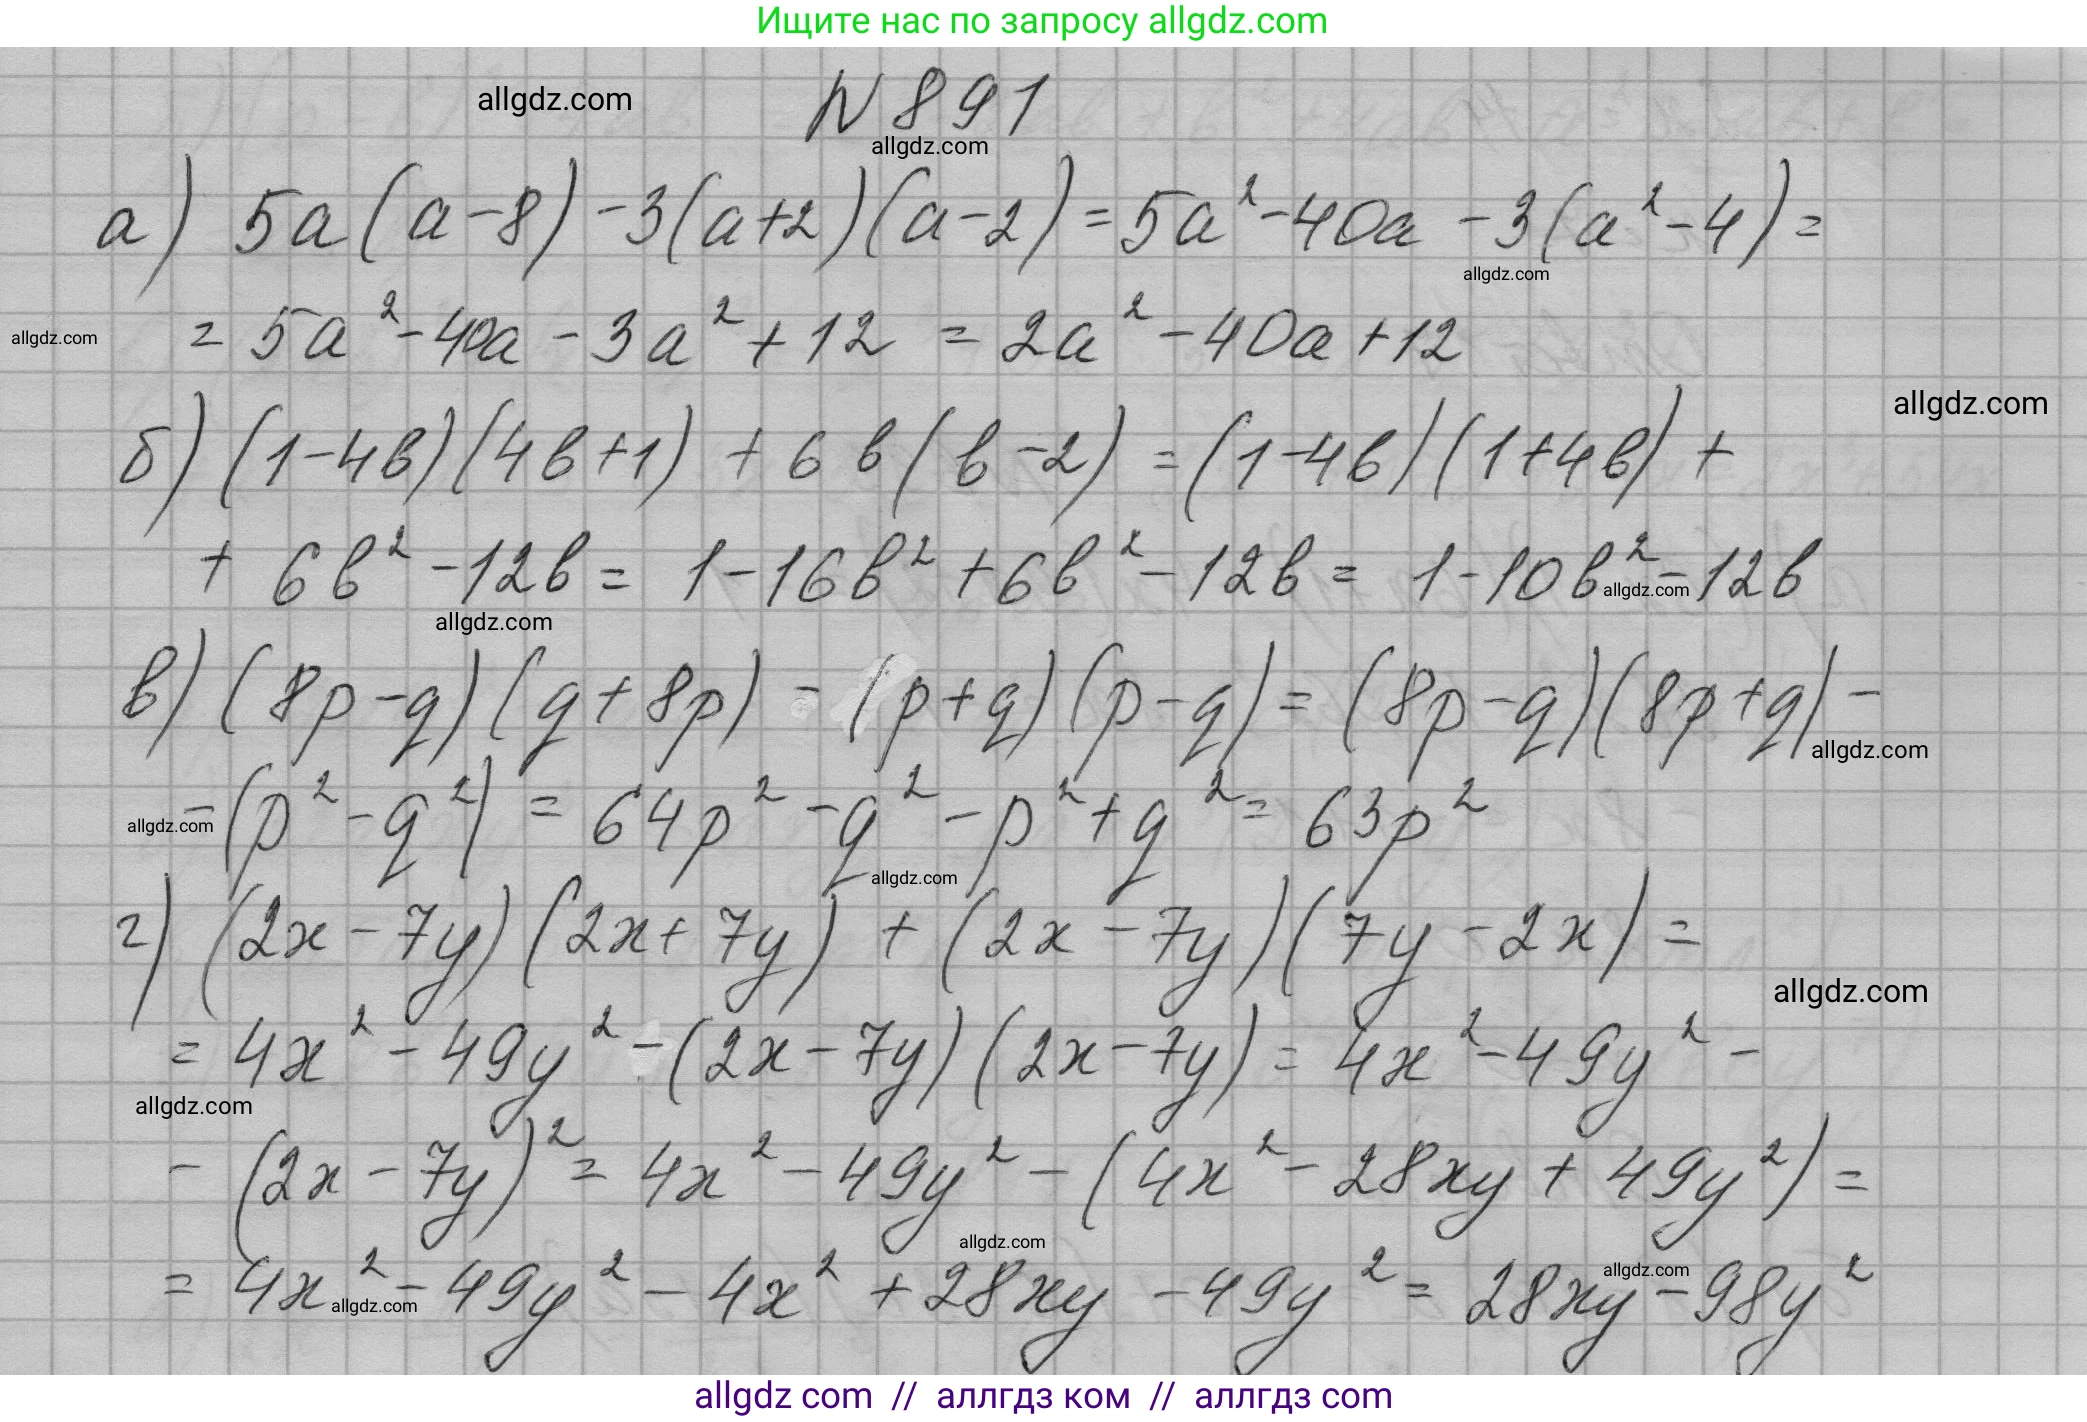 Ищите нас по запросу allgdz.com
allgdz.com
N 891
allgdz.com
а) 5a(a-8) -3(a+2)(a-2)=5a²-40a -3(a²-4)=
allgdz.com
= 5a²-40a -3a²+12 = 2a²-40a+12
allgdz.com
allgdz.com
б) (1-4b)(4b+1) + 6b(b-2) =(1-4b)(1+4b)+
+ 6b²-12b= 1-16b²+6b²-12b= 1-10b²-12b
allgdz.com
allgdz.com
в) (8p-q)(q+8p) - (p+q)(p-q)=(8p-q)(8p+q)-
allgdz.com
-(p²-q²) = 64p²-q²-p²+q²= 63p²
allgdz.com
allgdz.com
г) (2x-7y)(2x+7y) + (2x-7y)(7y-2x)=
allgdz.com
= 4x²-49y²-(2x-7y)(2x-7y)= 4x²-49y²-
allgdz.com
-(2x-7y)²= 4x²-49y²-(4x²-28xy+49y²)=
allgdz.com
= 4x²-49y²-4x²+28xy-49y²= 28xy-98y²
allgdz.com
allgdz.com
allgdz com // аллгдз ком // аллгдз com